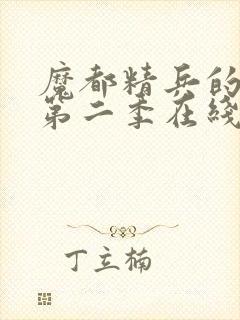 魔都精兵的
第二季在线
丁立楠